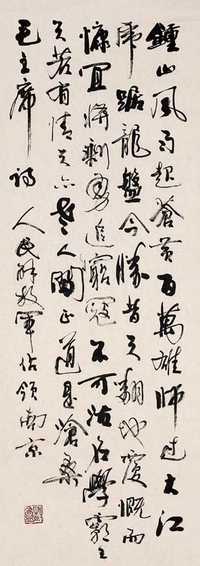 鍾山風雨起蒼黃百萬雄師过大江
虎踞龍盤今勝昔天翻地覆慨而
慷宜將剩勇追窮寇不可沽名學霸王
天若有情天亦老人間正道是滄桑
毛主席詩 人民解放軍佔領南京